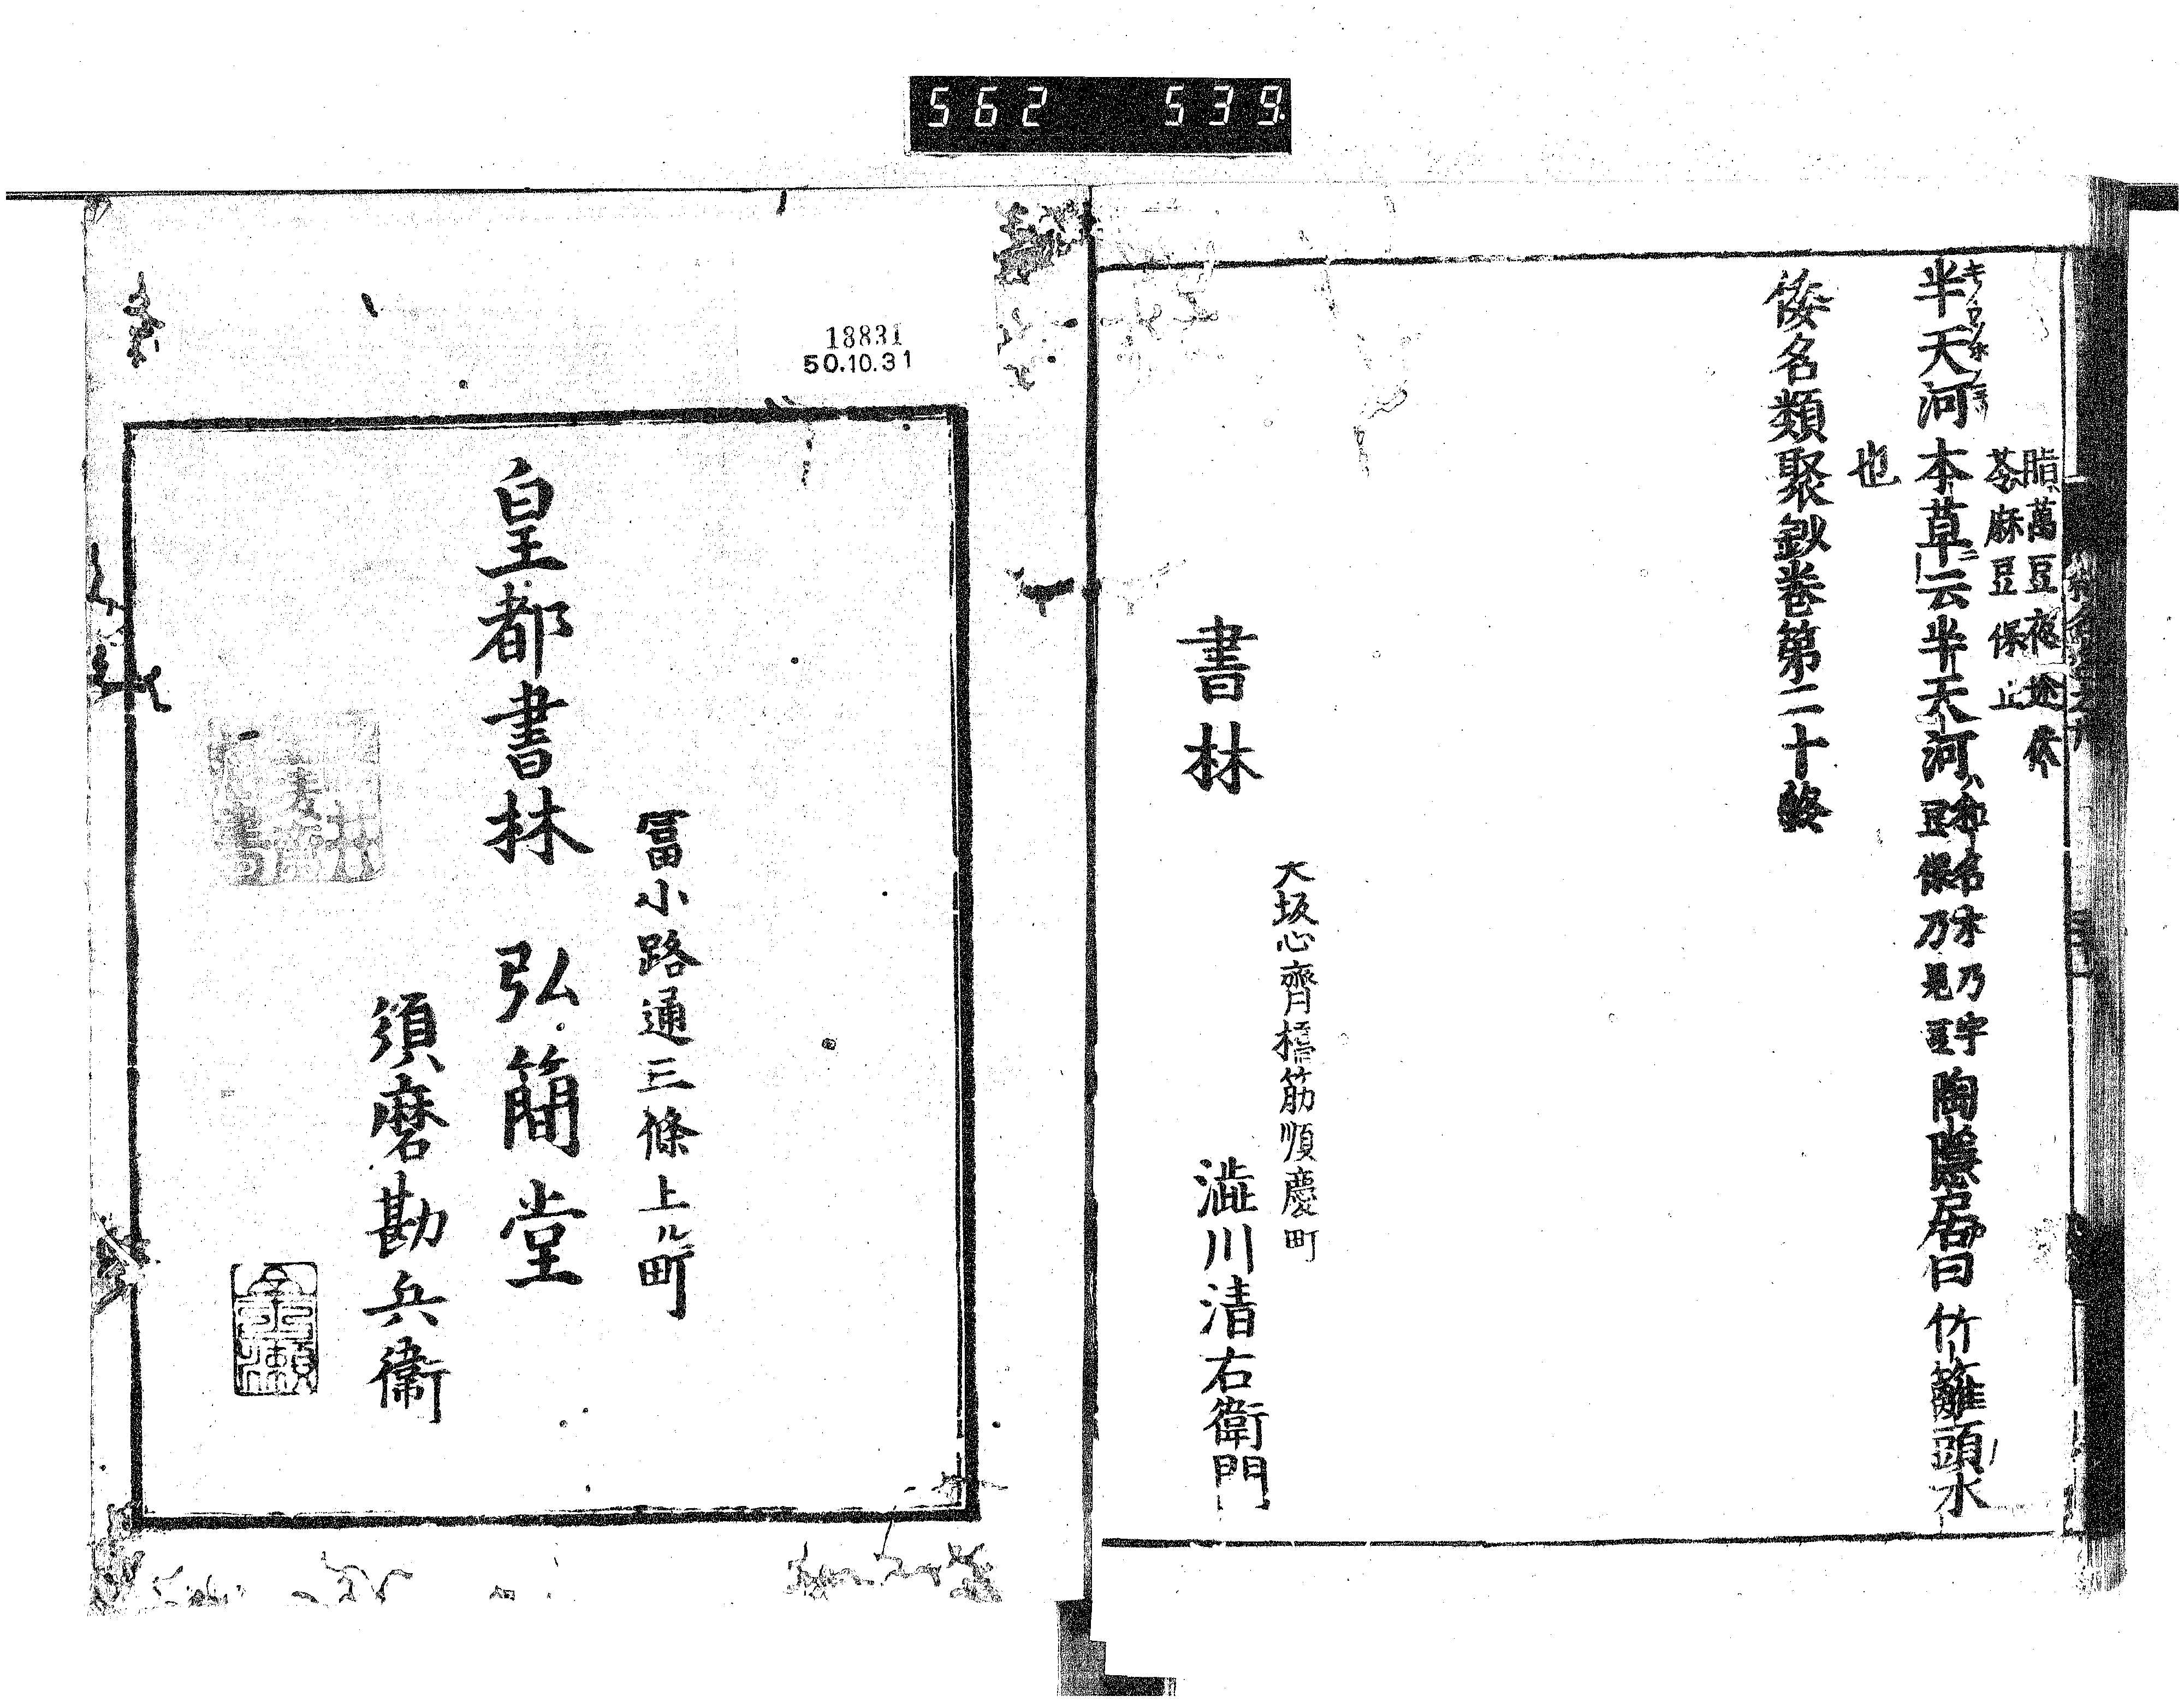 562 539
脂萬豆夜迩
苓麻豆保止
半天河本草云半天河和名木乃宇豆保乃美豆陶隱居曰竹籬頭水
也
倭名類聚鈔卷第二十終
大坂心齊橋筋順慶町
書林 澁川清右衛門
18831
50.10.31
冨小路通三條上ル町
皇都書林 弘簡堂
須磨勘兵衛